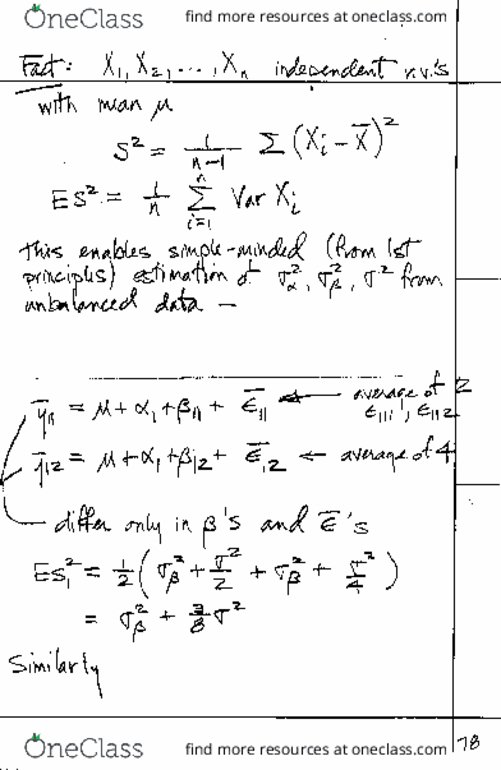 OneClass find more resources at oneclass.com
Fact: X₁, X₂, ..., Xₙ independent r.v.'s
with mean μ
S² = 1/(n-1) Σ (Xᵢ - X̄)²
ES² = 1/n Σᵢ₌₁ⁿ Var Xᵢ
this enables simple-minded (from 1st
principles) estimation of σ_α², σ_β², σ² from
unbalanced data —
ȳ₁₁ = μ + α₁ + β₁₁ + ε̄₁₁ ← average of 2
ε₁₁₁, ε₁₁₂
ȳ₁₂ = μ + α₁ + β₁₂ + ε̄.₁₂ ← average of 4
differ only in β's and ε̄'s
Es₁² = 1/2 (σ_β² + σ²/2 + σ_β² + σ²/4)
= σ_β² + 3/8 σ²
Similarly
OneClass find more resources at oneclass.com
78